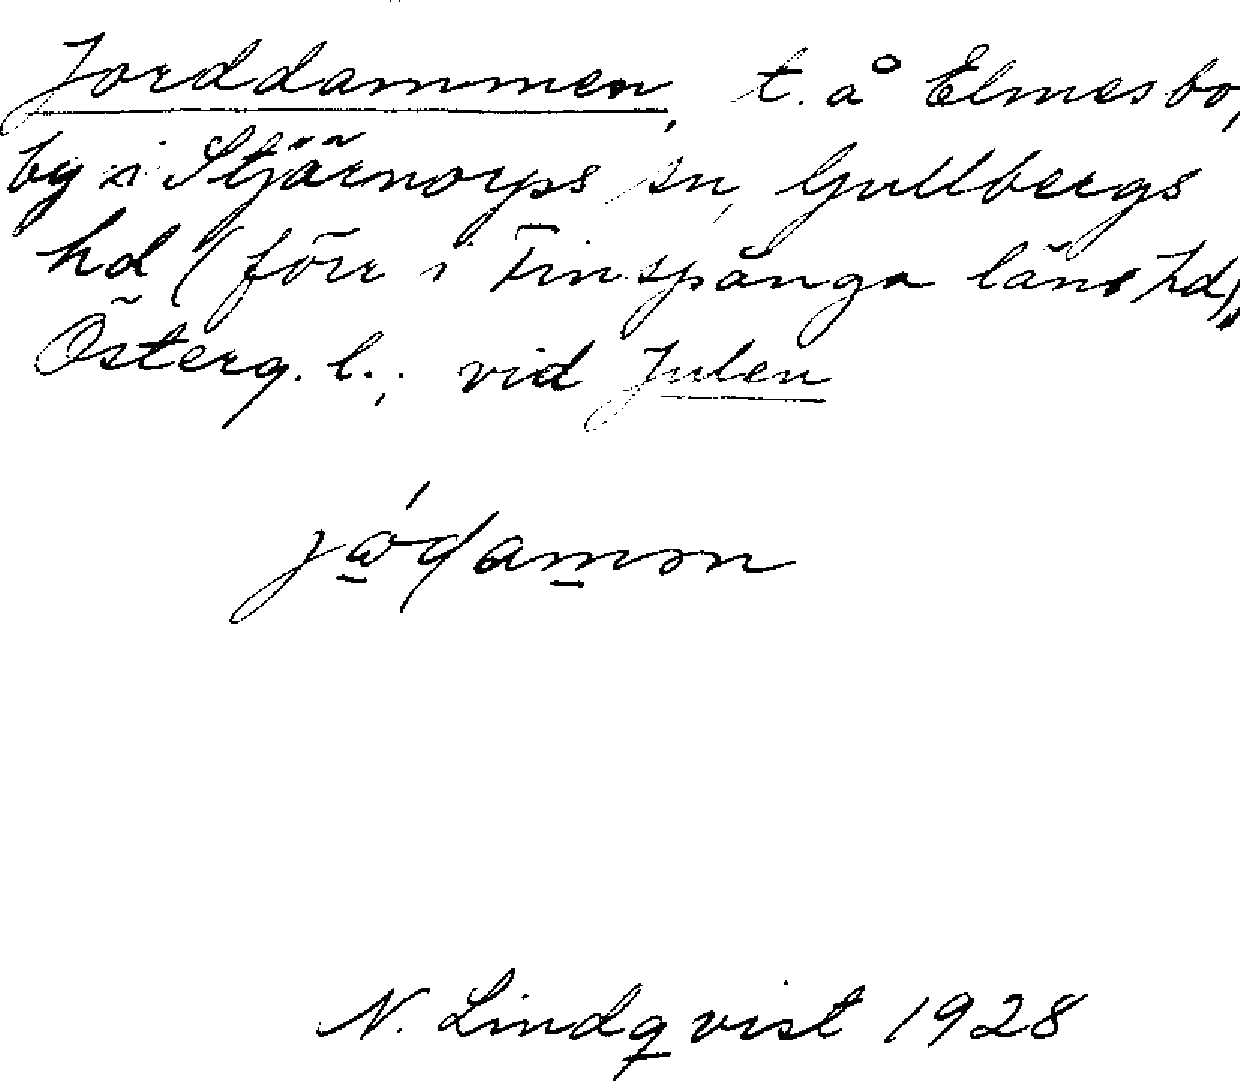 Jorddammen, t. å Elmesbo,
by i Stjärnorps sn, Gullbergs
hd (förr i Finspånga läns hd),
Österg. l.; vid Julen
N. Lindqvist 1928